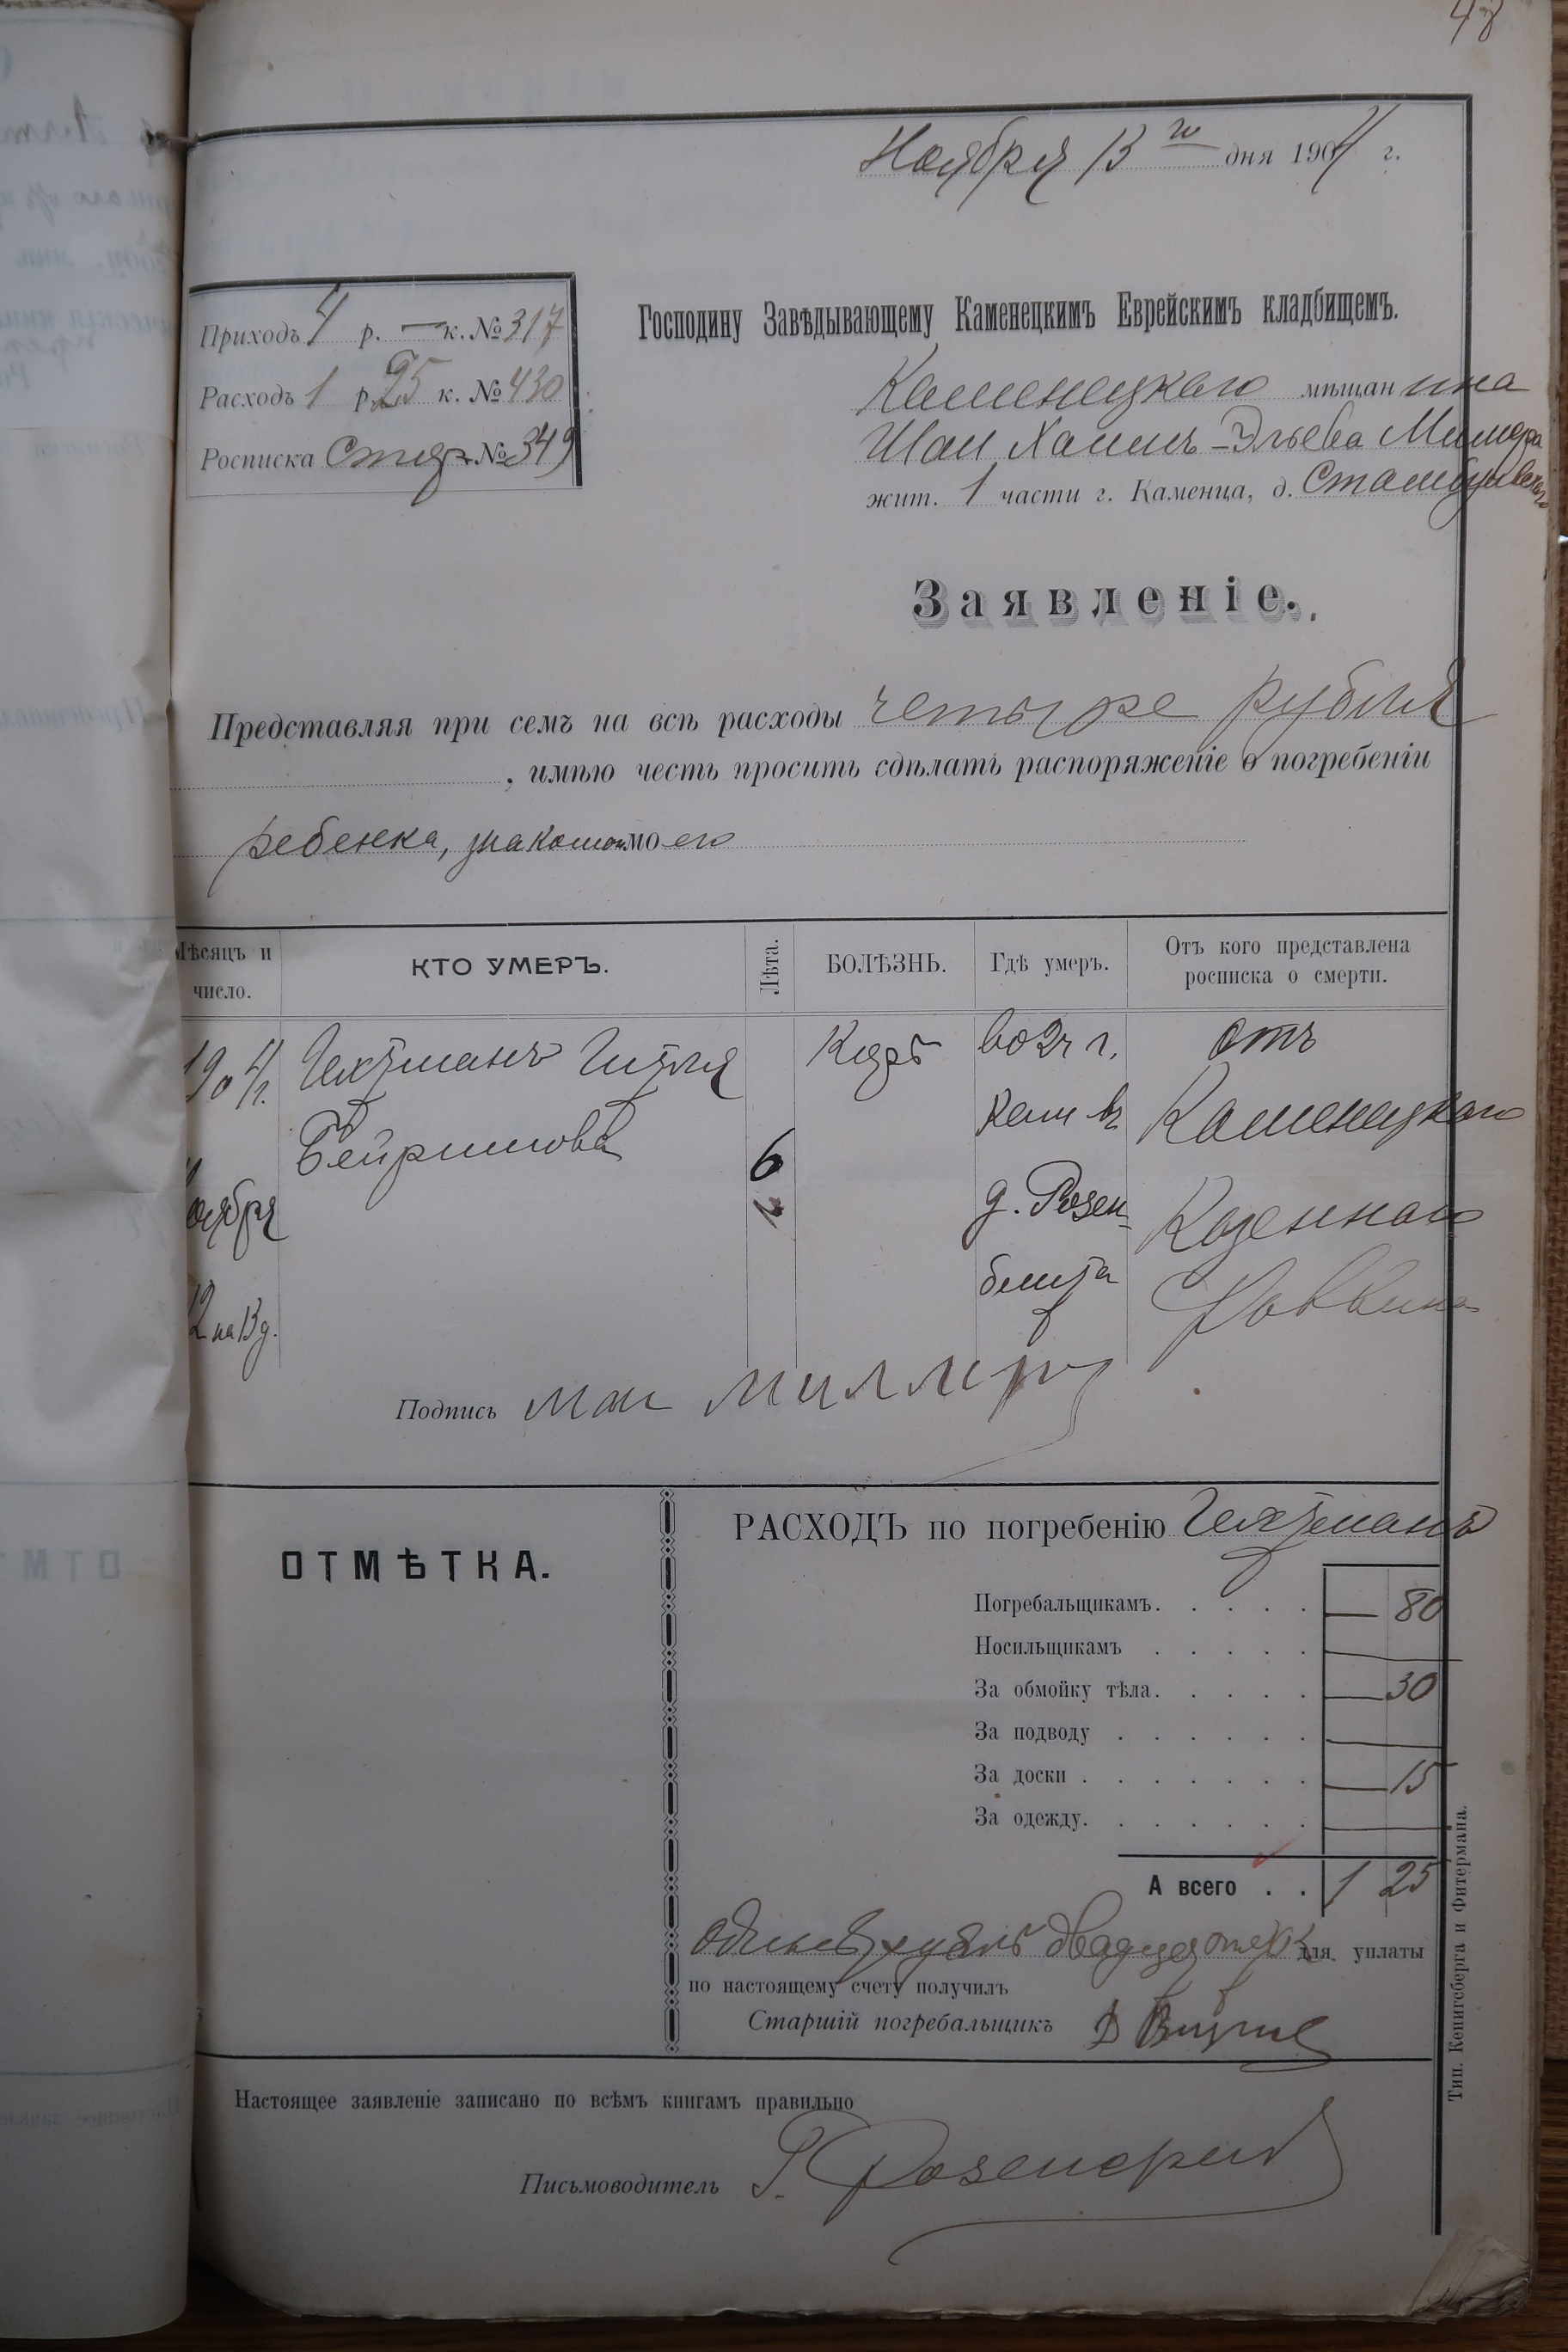 48
Ноября 13 го дня 1904 г.
Приходъ 4 р. — к. № 317
Расходъ 1 р. 25 к. № 430
Росписка Стар. № 349
Господину Завѣдывающему Каменецкимъ Еврейскимъ кладбищемъ.
Каменецкаго мѣщанина
Шаи Хаимъ-Эльева Миллера
жит. 1 части г. Каменца, д.
Заявленіе.
Представляя при семъ на всѣ расходы четыре рубля
, имѣю честь просить сдѣлать распоряженіе о погребеніи
ребенка, знакомомоего
Мѣсяцъ и число.
КТО УМЕРЪ.
Лѣта.
БОЛѢЗНЬ.
Гдѣ умеръ.
Отъ кого представлена росписка о смерти.
1904 г.
Ноября
12 на 13 д.
Гехтманъ Гитля
6
Корь
во 2 ч г.
Кам въ
д. Розен-
блита
отъ
Каменецкаго
Казеннаго
Раввина
Подпись Шаи Миллеръ
ОТМѢТКА.
РАСХОДЪ по погребенію Гехтманъ
Погребальщикамъ. — 80
Носильщикамъ —
За обмойку тѣла. — 30
За подводу —
За доски — 15
За одежду. —
А всего 1 25
Одинъ рубль двадцать пять к. для уплаты
по настоящему счету получилъ
Старшій погребальщикъ
Настоящее заявленіе записано по всѣмъ книгамъ правильно
Письмоводитель
Тип. Кенигсберга и Фитермана.